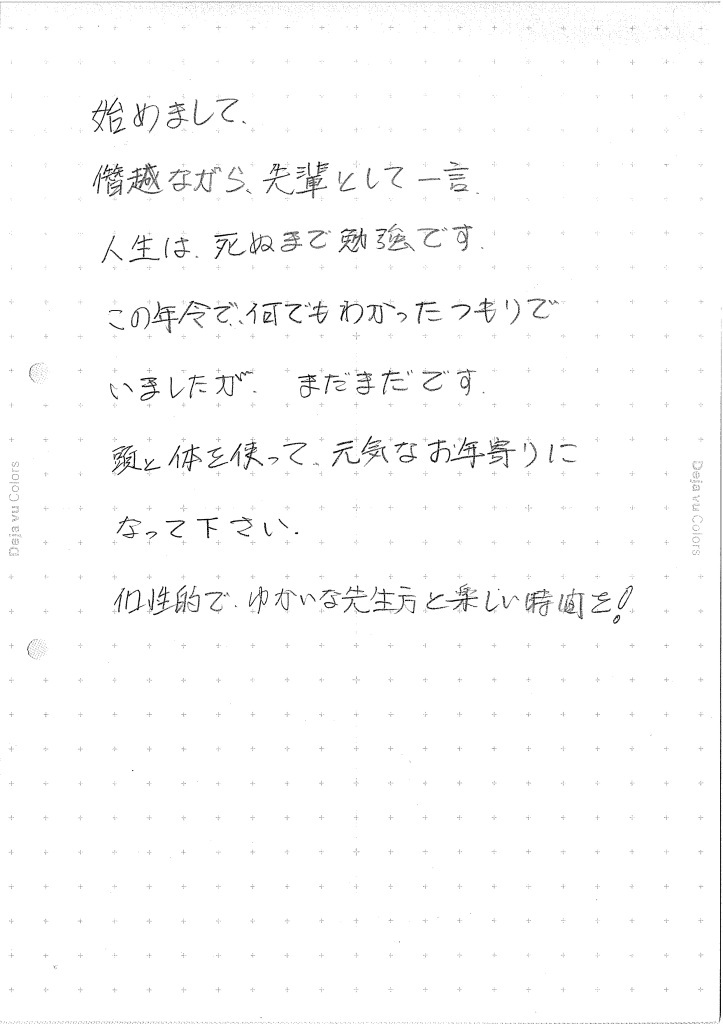 始めまして、
僭越ながら、先輩として一言.
人生は、死ぬまで勉強です.
この年令で、何でもわかったつもりで
いましたが、まだまだです.
頭と体を使って、元気なお年寄りに
なって下さい.
個性的で、ゆかいな先生方と楽しい時間を!
Deja vu Colors
Deja vu Colors